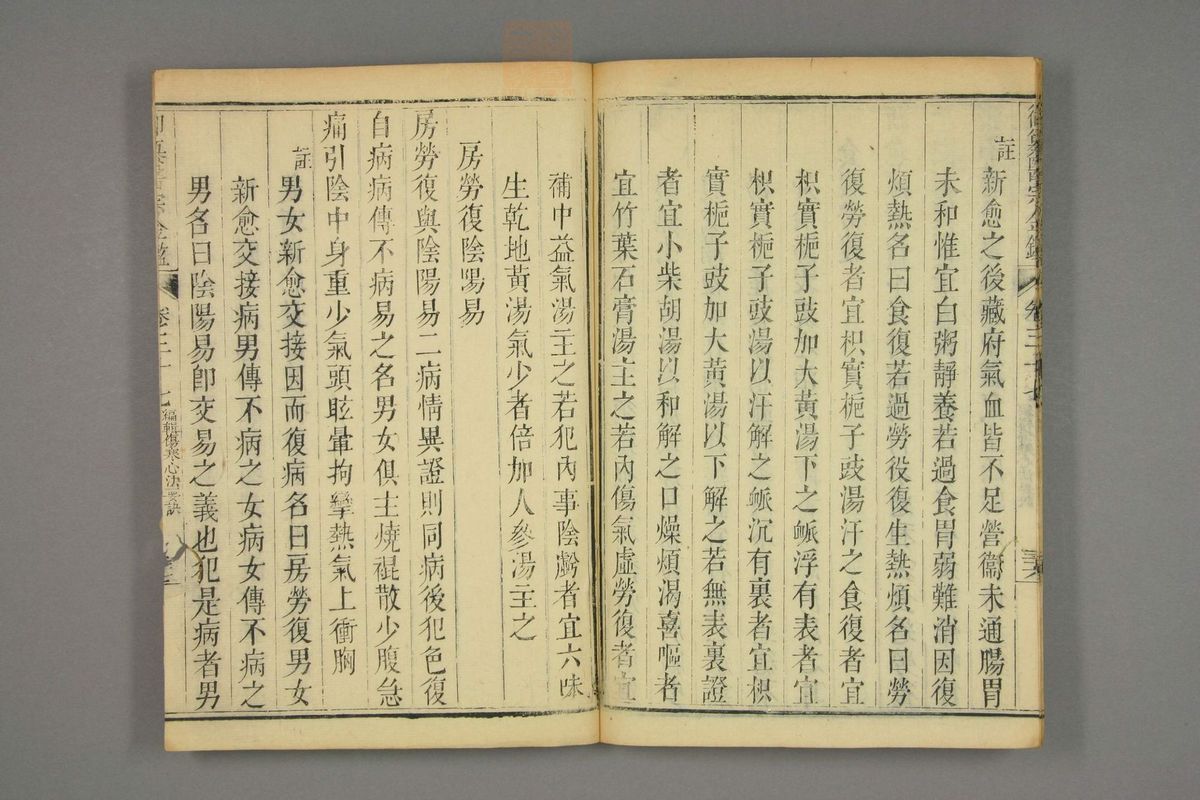 註
新愈之後藏府氣血皆不足營衞未通腸胃
未和惟宜白粥靜養若過食胃弱難消因復
煩熱名曰食復若過勞役復生熱煩名曰勞
復勞復者宜枳實梔子豉湯汗之食復者宜
枳實梔子豉加大黃湯下之㽃浮有表者宜
枳實梔子豉湯以汗解之㽃沉有裏者宜枳
實梔子豉加大黃湯以下解之若無表裏證
者宜小柴胡湯以和解之口燥煩渴喜嘔者
宜竹葉石膏湯主之若內傷氣虛勞復者宜
補中益氣湯主之若犯內事陰虧者宜六味
生乾地黃湯氣少者倍加人參湯主之
房勞復陰陽易
房勞復與陰陽易二病情異證則同病後犯色復
自病病傳不病易之名男女俱主燒裩散少腹急
痛引陰中身重少氣頭眩暈拘攣熱氣上衝胸
註
男女新愈交接因而復病名曰房勞復男女
新愈交接病男傳不病之女病女傳不病之
男名曰陰陽易卽交易之義也犯是病者男
編輯傷寒心法要訣